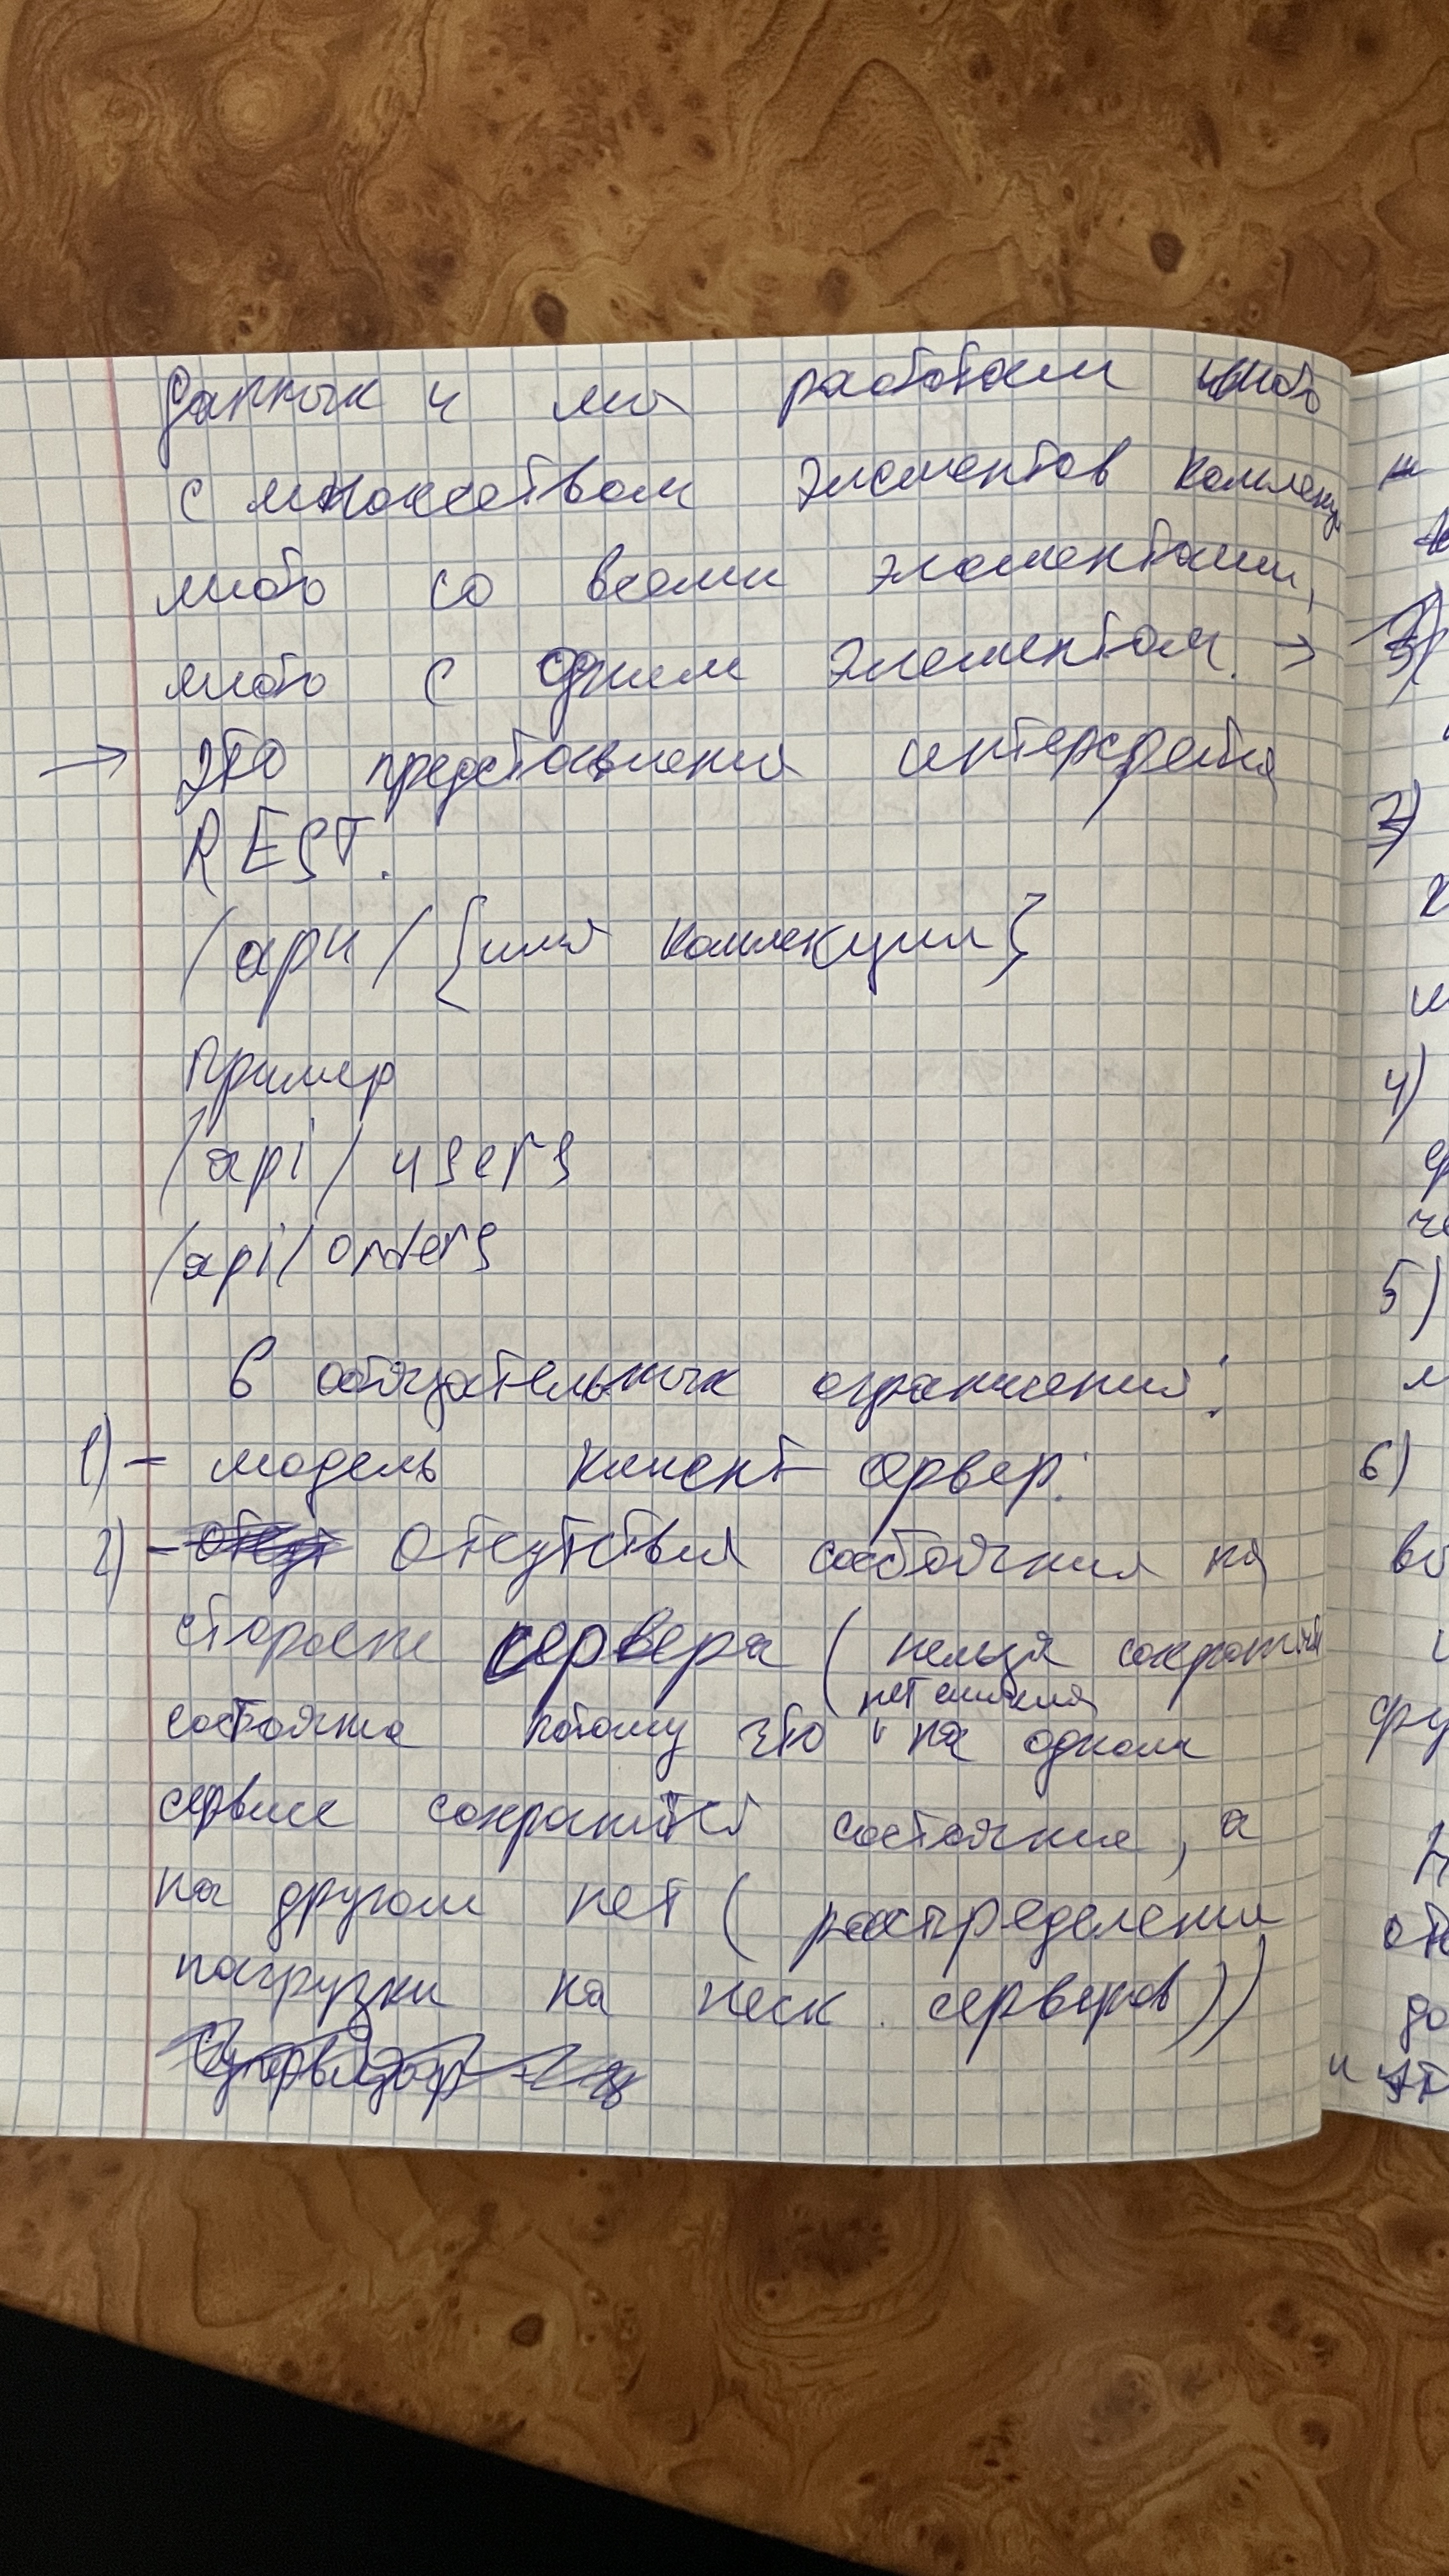 данных и мы работаем либо
с множеством элементов коллекц
либо со всеми элементами,
либо с одним элементом. →
→ это представления интерфейса
REST.
/api/{имя коллекции}
Пример
/api/users
/api/orders
6 обязательных ограничений:
1) - модель клиент сервер.
2) - отсутствия состояния на
стороне сервера (нельзя сохранять
нет смысла
состояние потому что на одном
сервисе сохраниться состояние, а
на другом нет (распределения
нагрузки на неск. серверов))
3)
4)
5)
6)